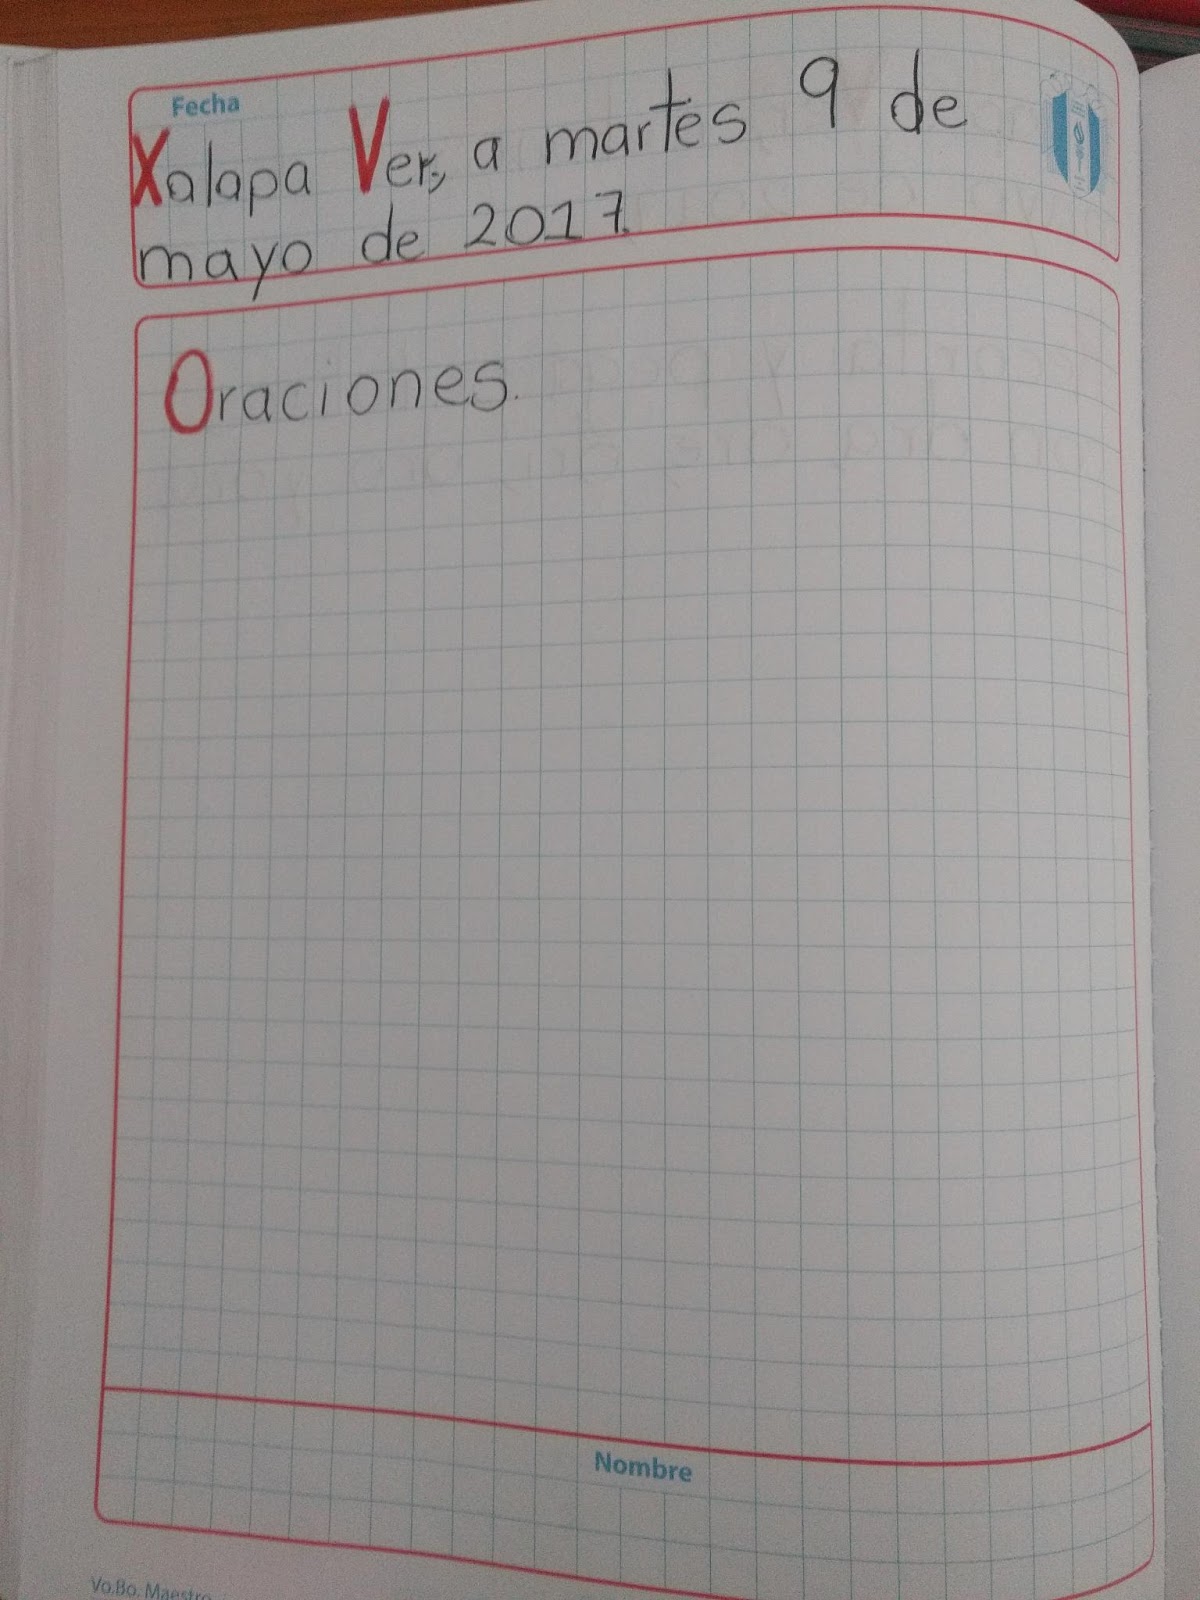 Fecha
Xalapa Ver., a martes 9 de
mayo de 2017.
Oraciones.
Nombre
Vo.Bo. Maestro